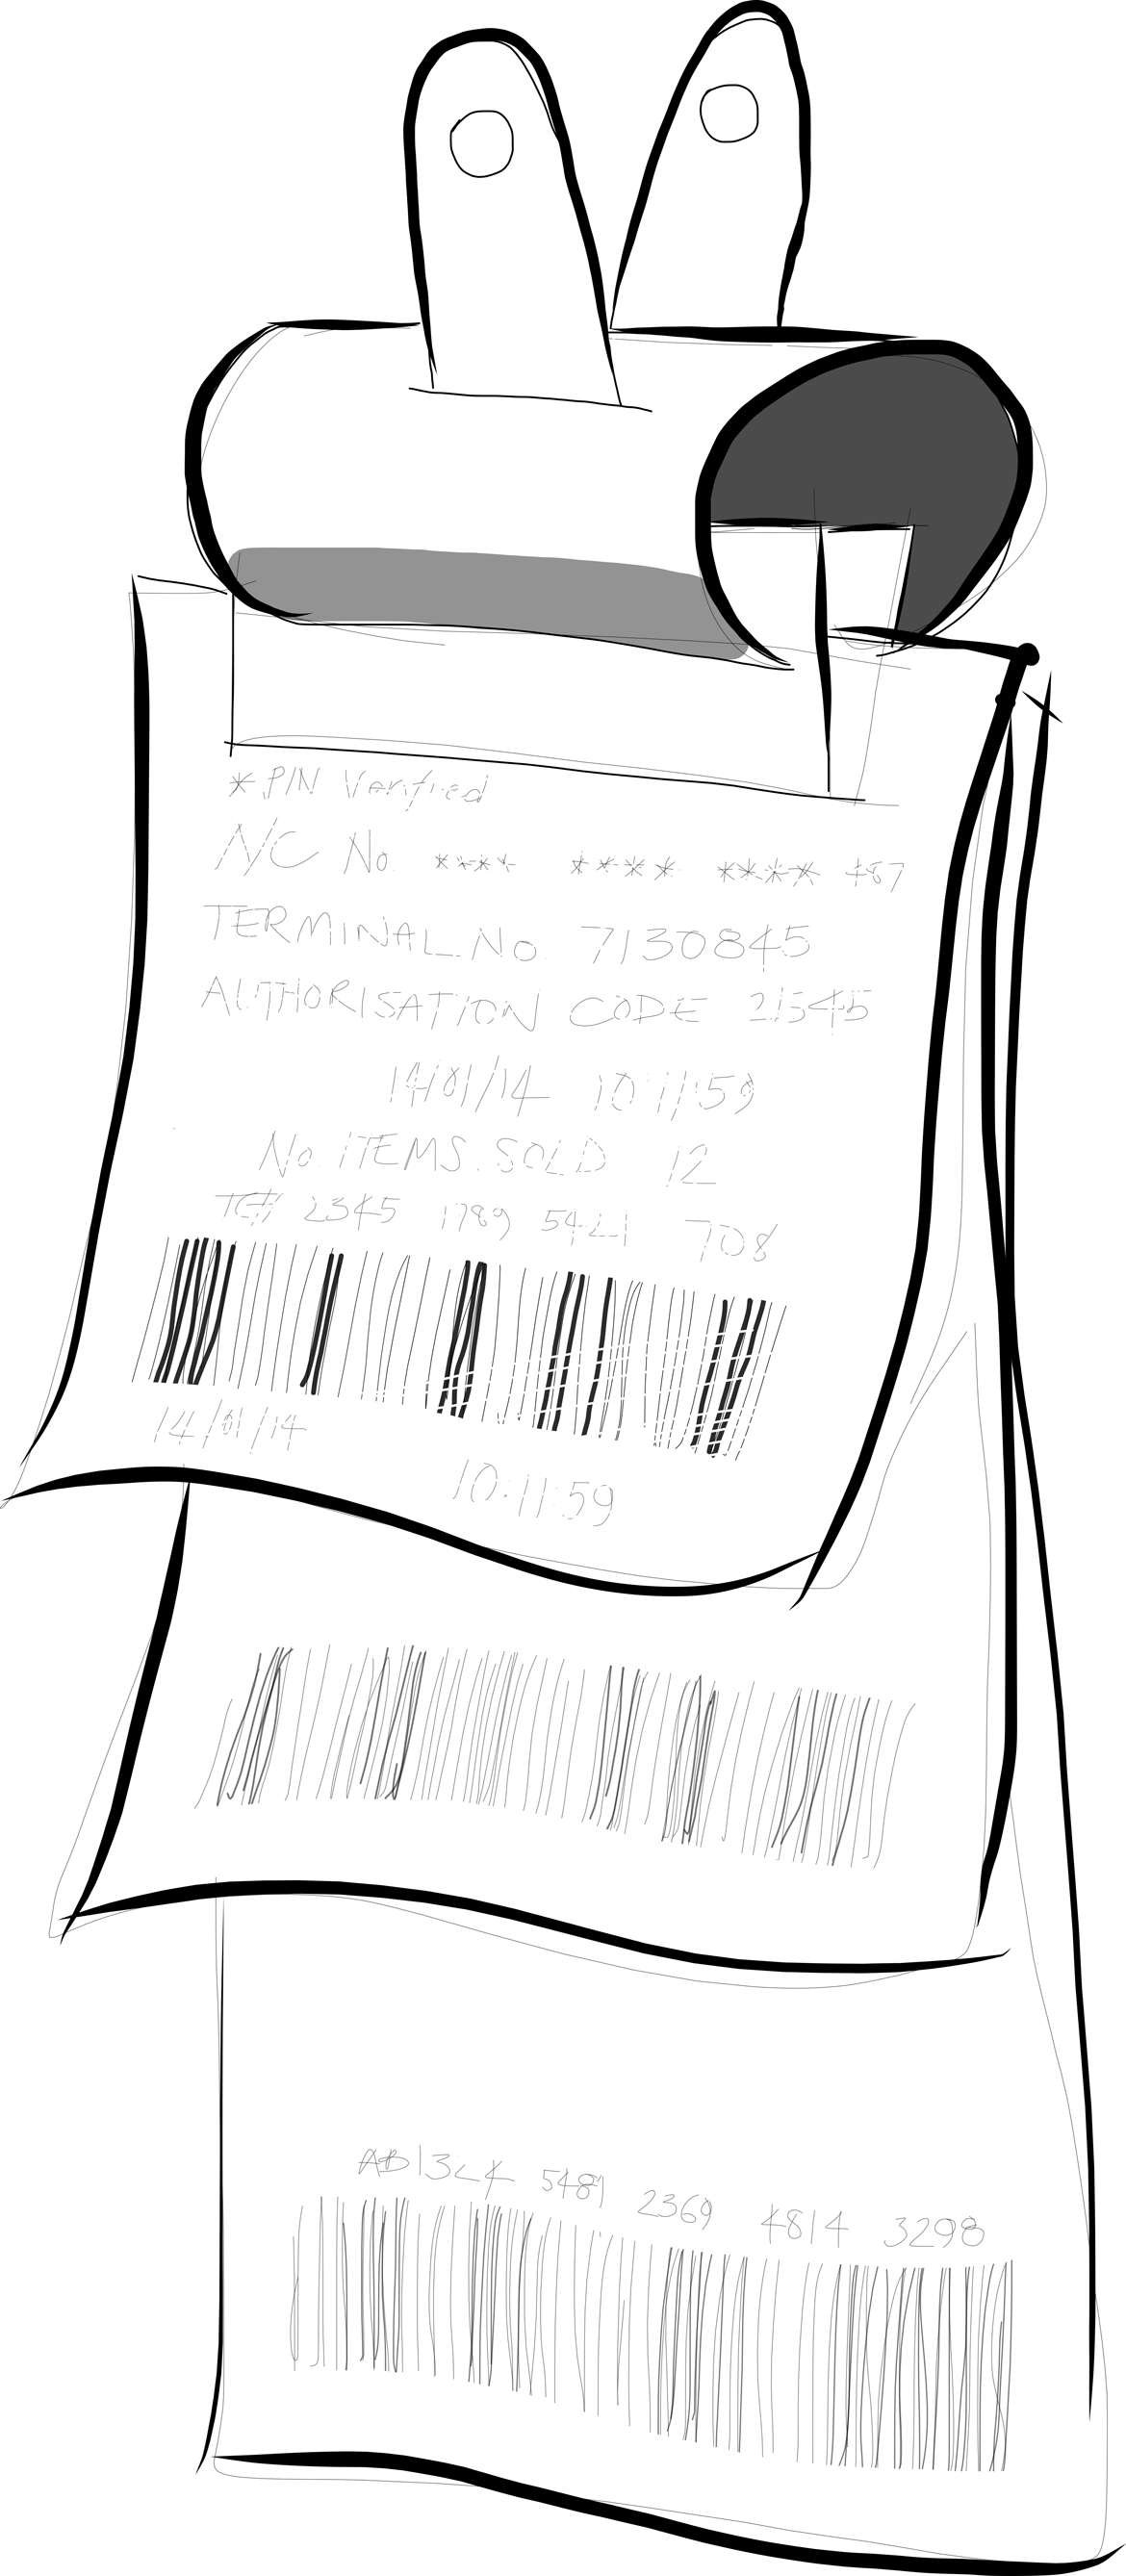 *PIN Verified
A/C No. **** **** **** 487
TERMINAL No. 7130845
AUTHORISATION CODE 21345
14/01/14 10:11:59
No. ITEMS SOLD 12
TC# 2345 1789 5421 708
14/01/14
10:11:59
AB13L4 5489 2369 4814 3298